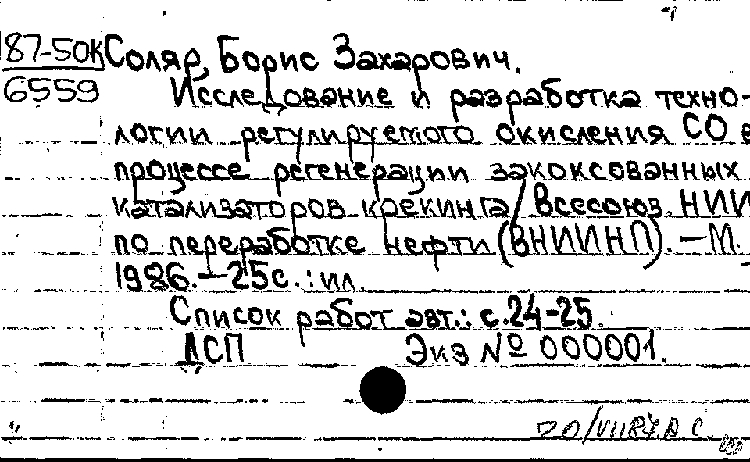 87-50К Соляр, Борис Захарович.
6559 Исследование и разработка техно-
логии регулируемого окисления СО в
процессе регенерации закоксованных
катализаторов крекинга/Всесоюз. НИИ
по переработке нефти (ВНИИНП). — М.
1986. — 25с.: ил.
Список работ авт.: с.24-25.
ДСП Экз № 000001.